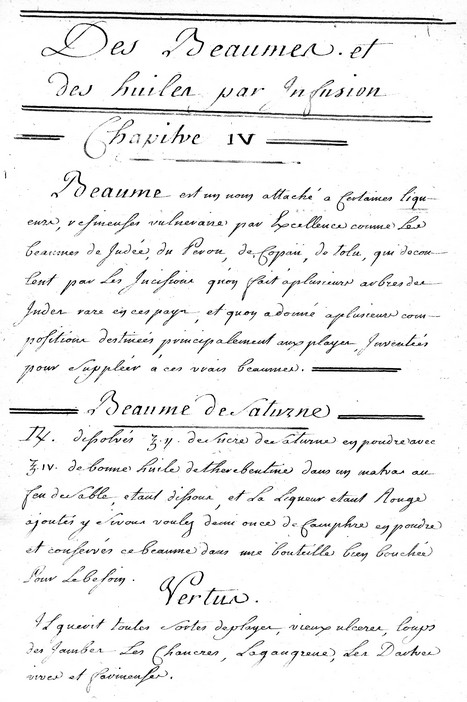 Des Beaumes. et
des huiles par Infusion
Chapitre IV
Beaume est un nom attaché a Certaines liqu-
eurs, resineuses vulneraire par Excellence comme les
beaumes de Judée, du Perou, de Copaü, de tolu, qui decou-
lent par les Incisions qu'on fait a plusieurs arbres des
Indes rare en ces pays, et quon a donné a plusieurs com-
positions destinées principalement aux playes, Inventées
pour Suppléer à ces vrais beaumes.
Beaume de Saturne
℞. dissolvés ℥.ij. de sucre de Saturne en poudre avec
℥.IV. de bonne huile de therebentine dans un matras au
feu de Sable, etant dissous, et La Liqueur etant Rouge
ajoutés y si vous voulez demi once de Camphre en poudre
et conservés ce beaume dans une bouteille bien bouchée
Pour le besoin.
Vertus.
Il guerit toutes Sortes de playes, vieux ulceres, loups
des Jambes Les Chancres, La gangrene, Les Dartres
vives et farineuses.